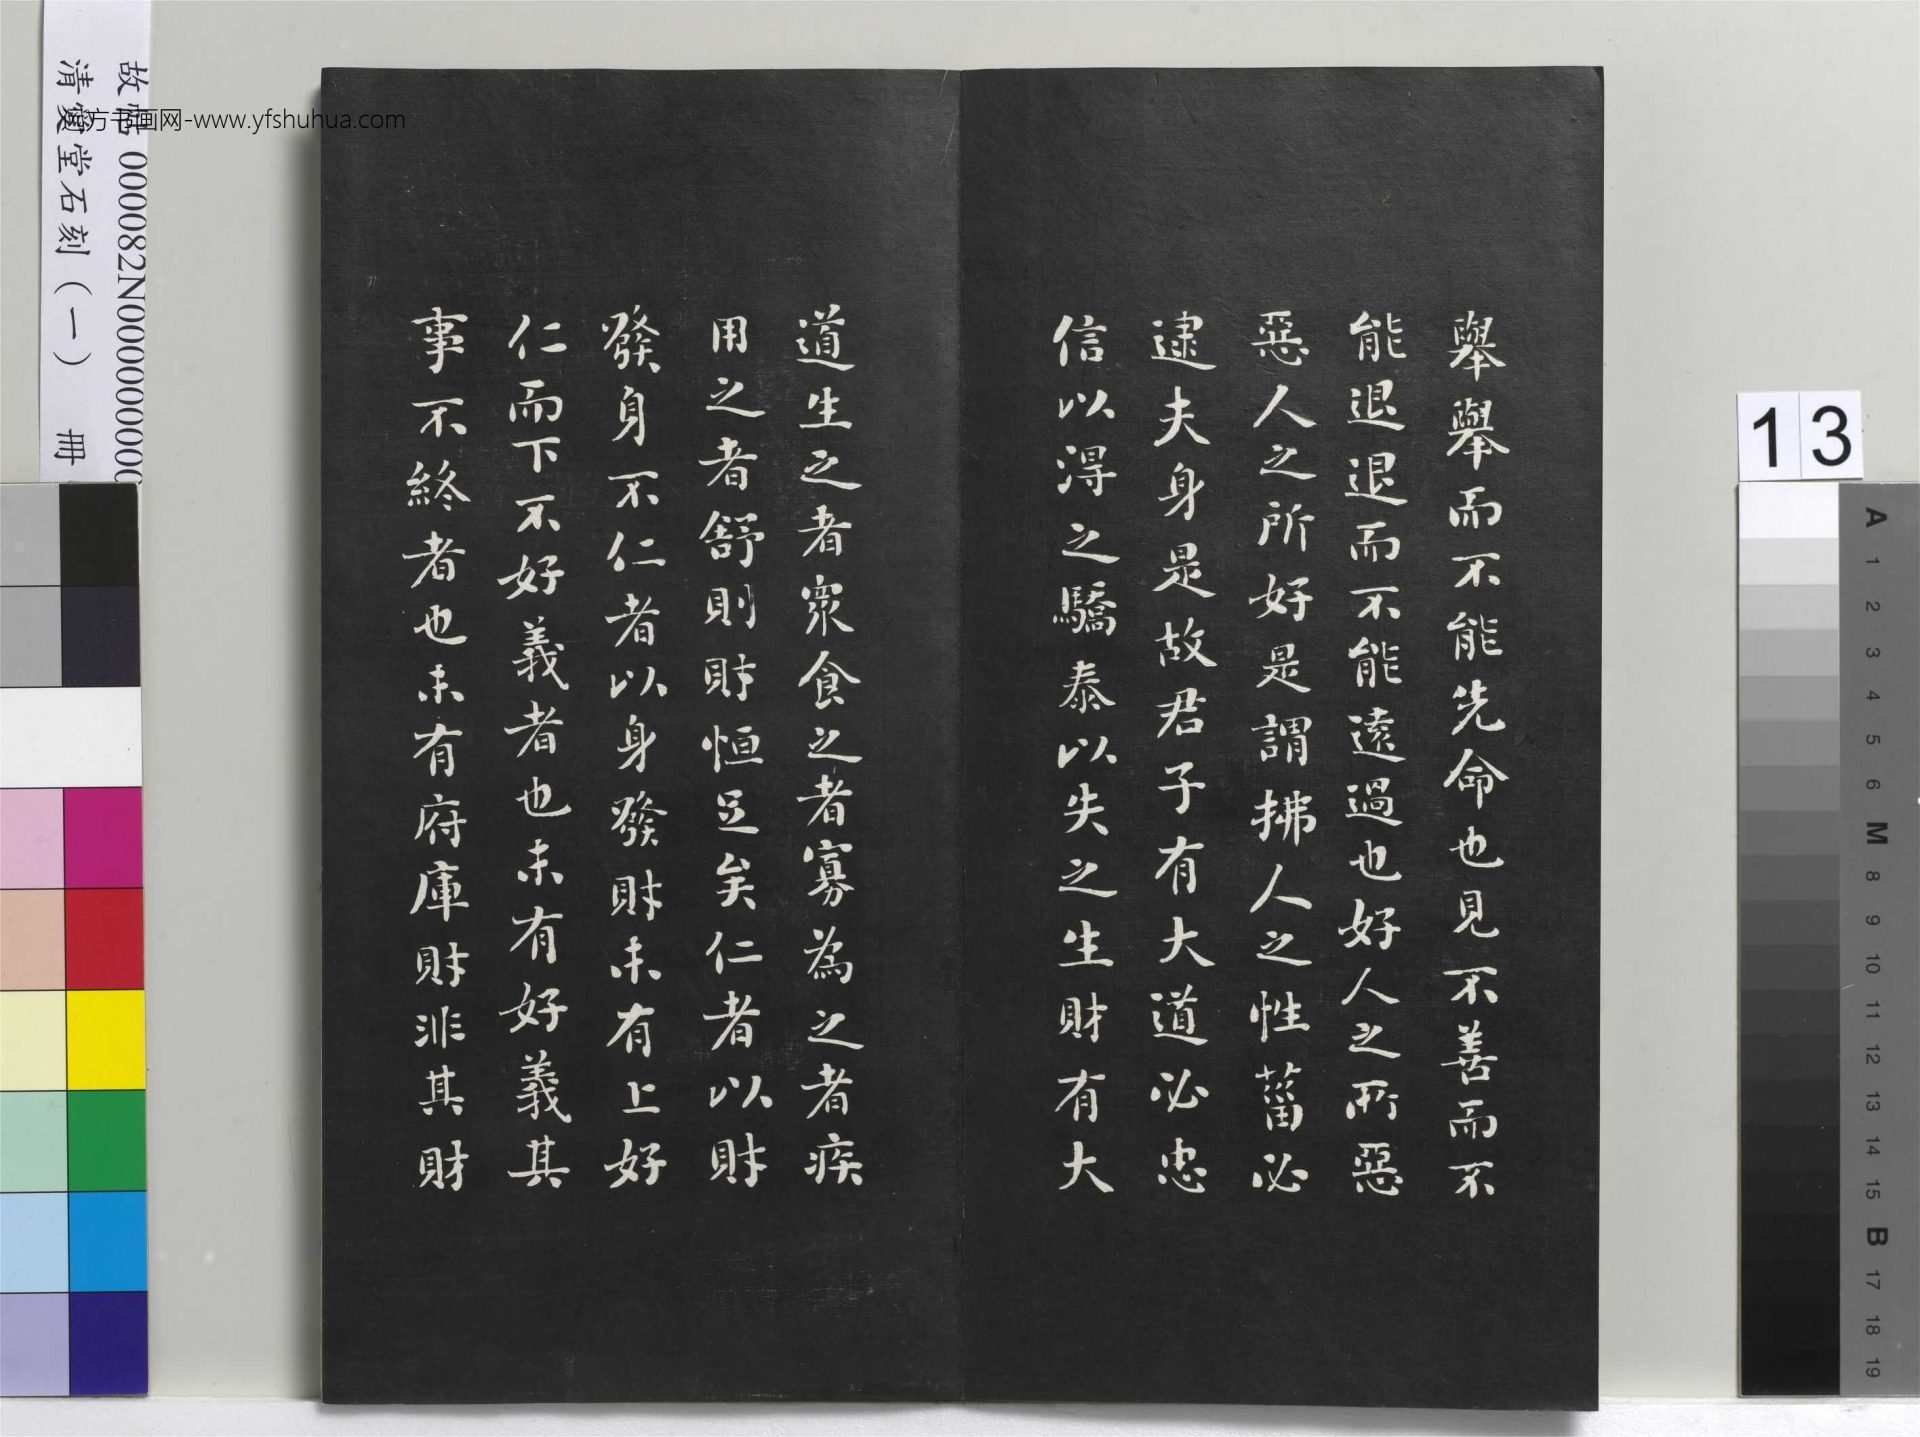 舉舉而不能先命也見不善而不
能退退而不能遠過也好人之所惡
惡人之所好是謂拂人之性菑必
逮夫身是故君子有大道必忠
信以得之驕泰以失之生財有大
道生之者眾食之者寡為之者疾
用之者舒則財恒足矣仁者以財
發身不仁者以身發財未有上好
仁而下不好義者也未有好義其
事不終者也未有府庫財非其財
故 000082N00000000
清愛堂石刻（一） 冊
方书画网-www.yfshuhua.com
13
A 1 2 3 4 5 6 M 8 9 10 11 12 13 14 15 B 17 18 19